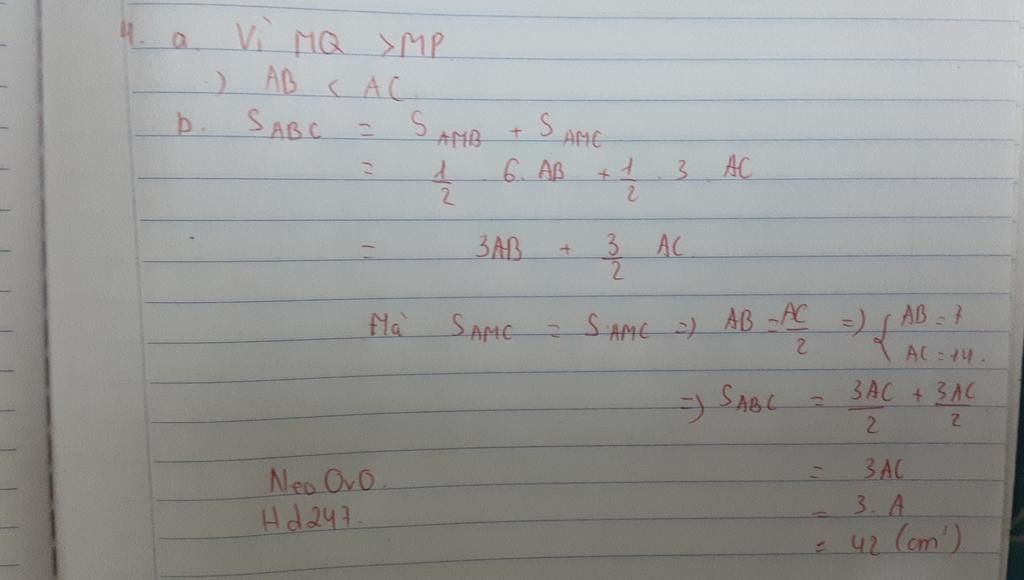 4. a. Vì MQ > MP
=) AB < AC
b. S_ABC = S_AMB + S_AMC
= 1/2 . 6. AB + 1/2 . 3 AC
= 3AB + 3/2 AC
Mà S_AMC = S_AMC =) AB = AC/2 =) { AB = 7
AC = 14.
=) S_ABC = 3AC/2 + 3AC/2
= 3AC
NeoOvO.
= 3. A
Hd247.
= 42 (cm²)